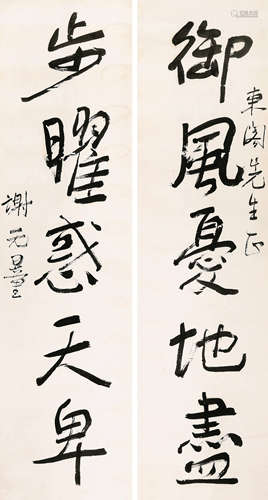 東閣先生正
御風憂地盡
步曜惑天卑
謝元量